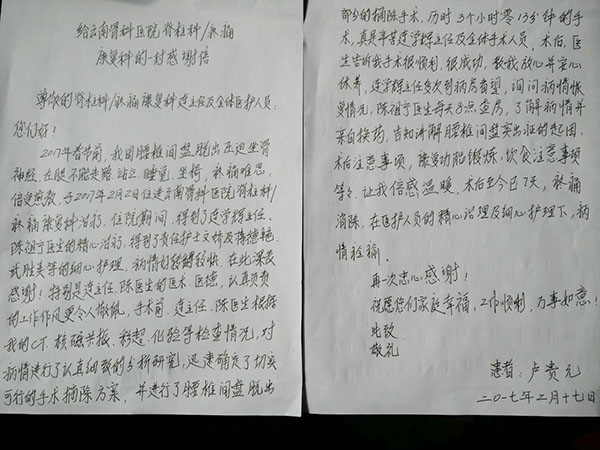 给云南骨科医院脊柱科/疼痛
康复科的一封感谢信
尊敬的脊柱科/疼痛康复科 主任及全体医护人员:
您们好!
2017年春节前,我因腰椎间盘脱出压迫坐骨
神经,左腿不能走路 站立 睡觉,坐椅,疼痛难忍,
倍受煎熬,于2017年2月2日住进云南骨科医院脊柱科/
疼痛康复科治疗,住院期间,得到了 主任、
陈祖宁医生的精心治疗,得到了责任护士文婷及
等的细心护理,病情好转得较快,在此深表
感谢!特别是 主任,陈医生的医术,医德,认真负责
的工作作风更令人敬佩,手术前, 主任,陈医生根据
我的CT,核磁共振,彩超,化验等检查情况,对
病情进行了认真细致的分析研究,迅速确定了切实
可行的手术摘除方案,并进行了腰椎间盘脱出
部分的摘除手术,历时3个小时零13分钟的手
术,真是辛苦 主任及全体手术人员,术后,医
生告诉我手术很顺利,很成功,教我放心并安心
休养, 主任多次到病房看望,询问病情恢
复情况,陈祖宁医生每天8点查房,了解病情并
亲自换药,告知讲解腰椎间盘突出症的起因,
术后注意事项,康复功能锻炼,饮食注意事项
等等,让我倍感温暖,术后至今已7天,疼痛
消除,在医护人员的精心治理及细心护理下,病
情痊愈。
再一次忠心感谢!
祝愿您们家庭幸福,工作顺利,万事如意!
此致
敬礼
患者:卢贵元
二〇一七年二月十七日